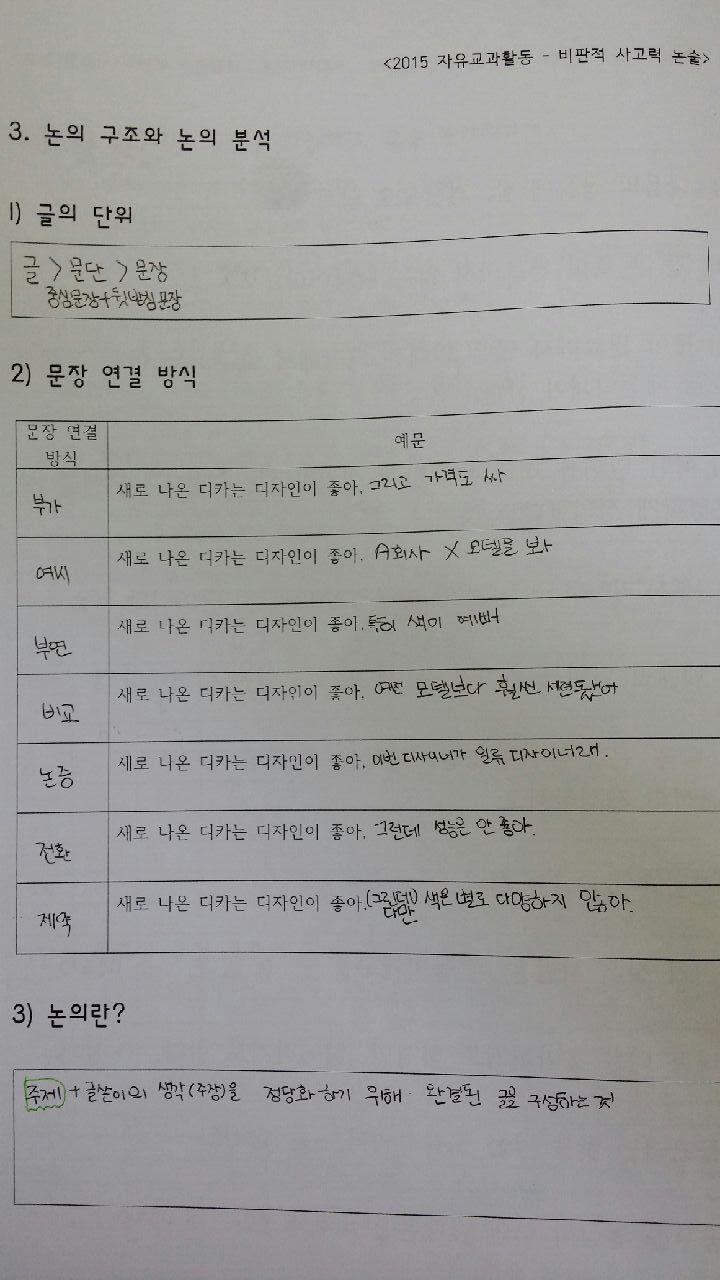 <2015 자유교과활동 - 비판적 사고력 논술>
3. 논의 구조와 논의 분석
1) 글의 단위
글 > 문단 > 문장
중심문장+뒷받침문장
2) 문장 연결 방식
문장 연결 방식 예문
부가 새로 나온 디카는 디자인이 좋아, 그리고 가격도 싸
예시 새로 나온 디카는 디자인이 좋아, A회사 X 모델을 봐
부연 새로 나온 디카는 디자인이 좋아, 특히 색이 예뻐
비교 새로 나온 디카는 디자인이 좋아, 예전 모델보다 훨씬 세련됐어
논증 새로 나온 디카는 디자인이 좋아, 이번 디자이너가 일류 디자이너래.
전환 새로 나온 디카는 디자인이 좋아, 그런데 성능은 안 좋아.
제약 새로 나온 디카는 디자인이 좋아, (그런데) 색은 별로 다양하지 않아.
다만
3) 논의란?
주제 + 글쓴이의 생각(주장)을 정당화하기 위해 완결된 글을 구성하는 것